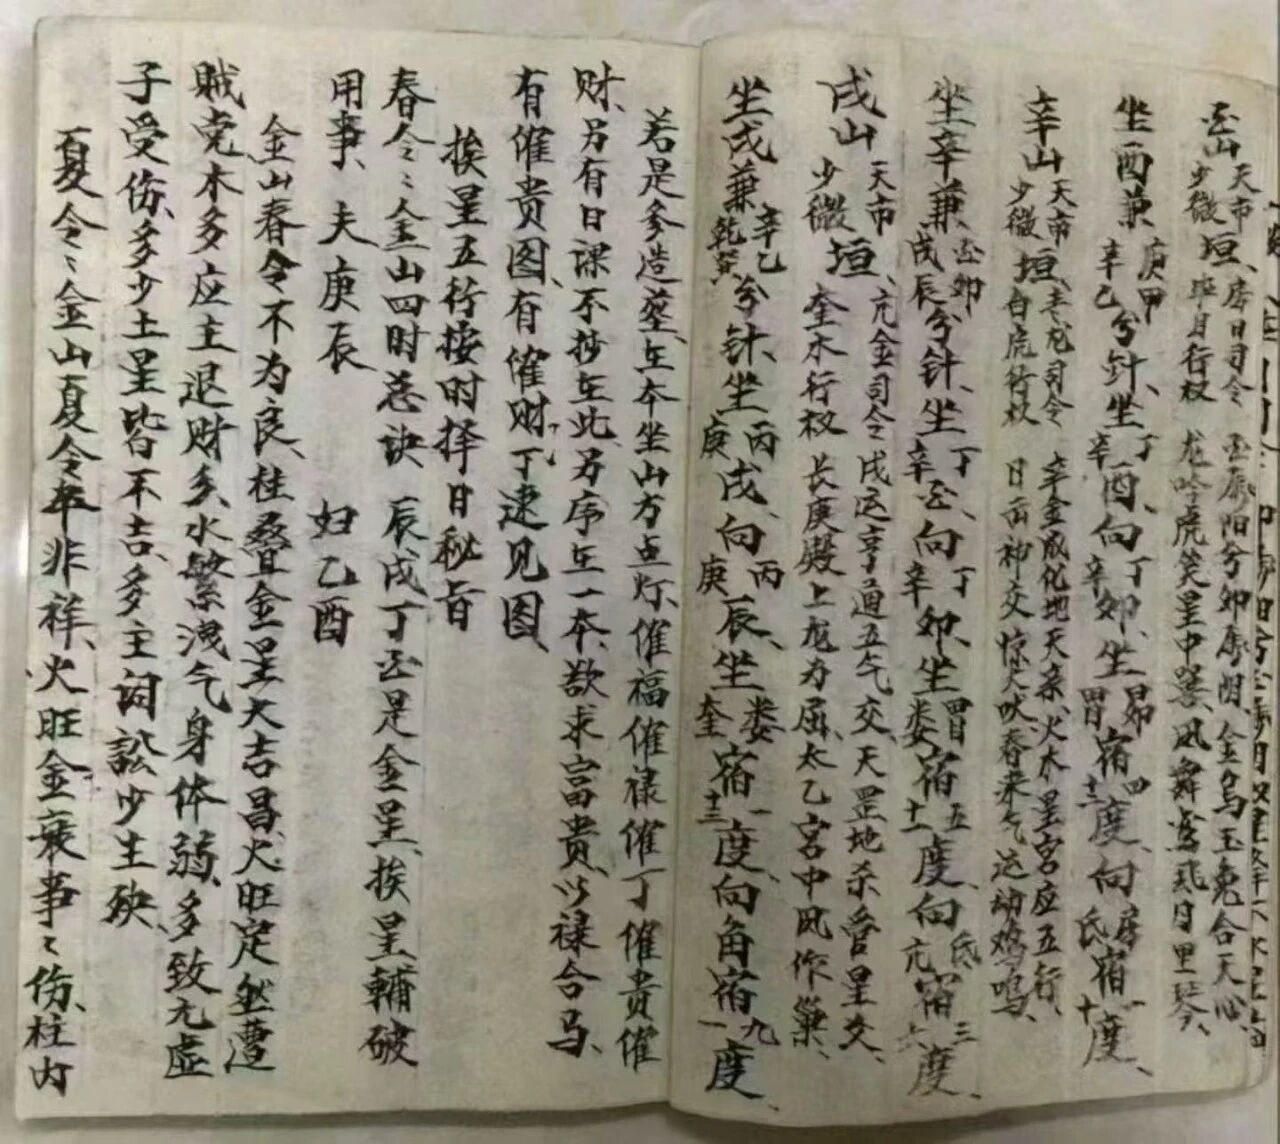 酉山 天市少微垣、房日司令 毕月行权 酉属阳兮卯属阴、金乌玉兔合天心、
龙吟虎笑星中聚、风舞鸾飞月里琴、
坐酉兼庚甲辛乙兮针、坐丁辛酉、向丁辛卯、坐昴胃宿四十三度、向房氐宿一十度、
辛山 天市少微垣、青龙司令 白虎行权 辛金成化地天亲、火木星宫应五行、
日面神交惊犬吠、春来气运动鸡鸣、
坐辛兼酉卯戌辰兮针、坐丁辛酉、向丁辛卯、坐胃娄宿五十一度、向氐亢宿三六度、
戌山 天市少微垣、亢金司令 奎木行权 戌运亨通五气交、天罡地杀管星爻、
长庚殿上龙为屈、太乙宫中凤作巢、
坐戌兼辛乙乾巽兮针、坐丙庚戌、向丙庚辰、坐娄奎宿一十三度、向角宿九一度、
若是爹造葬、在本坐山方点灯、催福催禄催丁催贵催
财、另有日课不抄在此、另序在一本、欲求富贵、以禄合马、
有催贵图、有催财、丁速见图、
挨星五行按时择日秘旨
春令：金山四时总诀 辰戌丁酉是金星、挨星輔破
用事、夫庚辰 妇乙酉
金山春令不为良、柱叠金星大吉昌、火旺定然遭
贼党、木多应主退财多、水繁洩气身体弱、多致尢虚
子受伤、多少土星皆不吉、多主词訟少生殃、
夏令：金山夏令卒非祥、火旺金衰事：伤、柱内